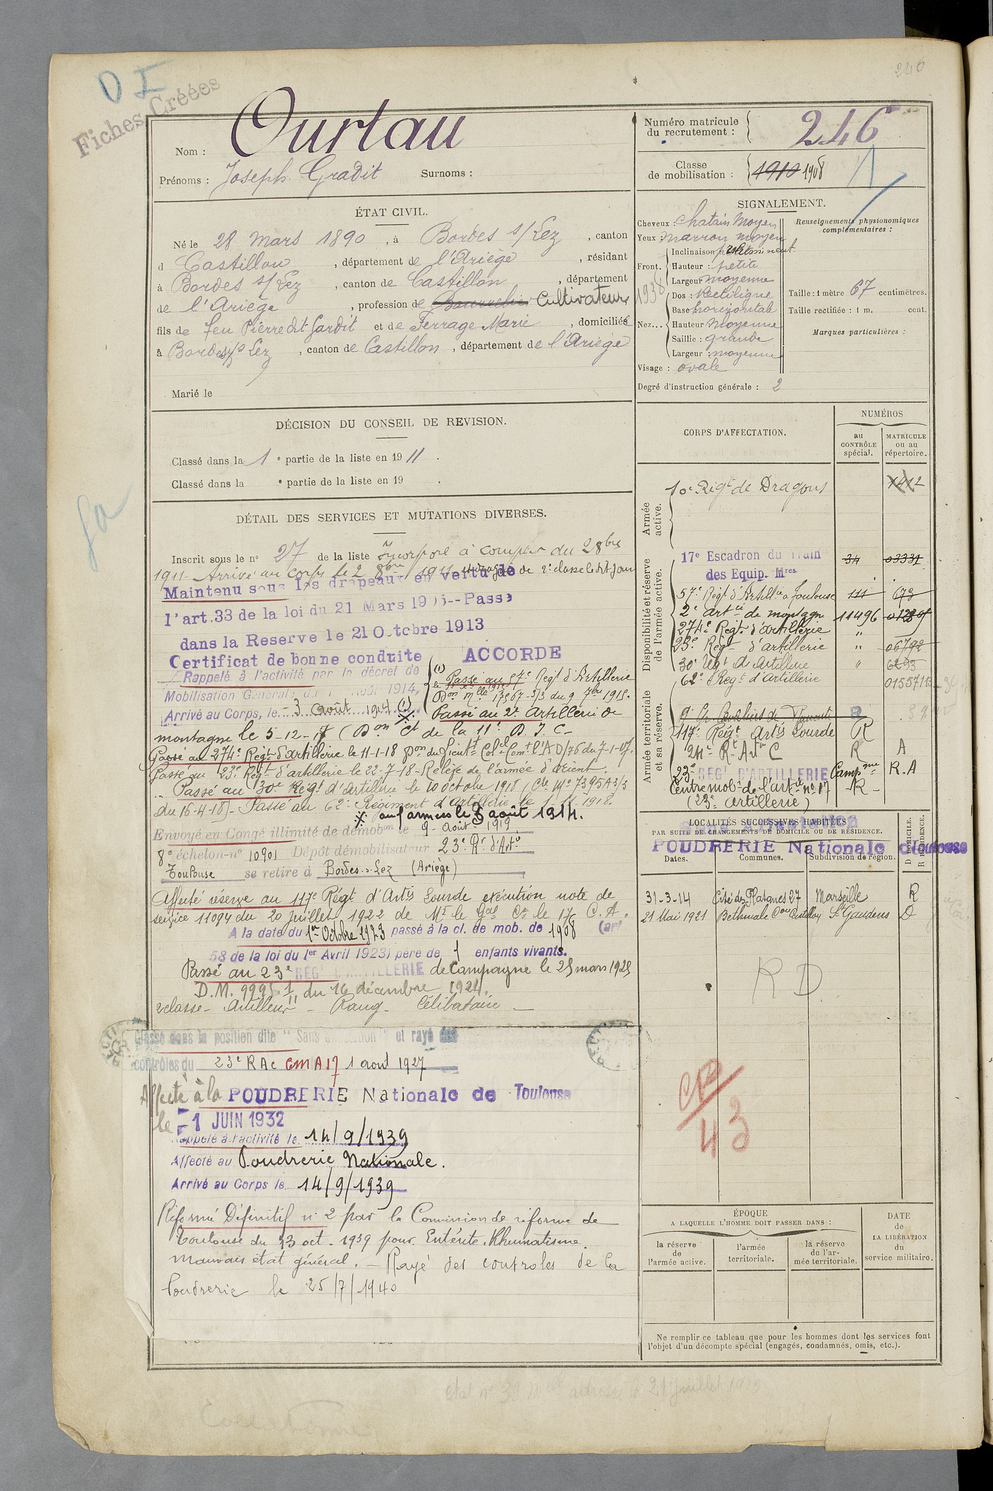 240
O I
Fiches Créées
Nom : Ourtau
Prénoms : Joseph Gradit Surnoms :
Numéro matricule du recrutement : 246
Classe de mobilisation : 1910 1908
1
ÉTAT CIVIL.
Né le 28 Mars 1890, à Bordes s/Lez, canton
d Castillon, département de l'Ariège, résidant
à Bordes s/Lez, canton de Castillon, département
de l'Ariège, profession de Cultivateur
fils de feu Pierre dit Gardit et de Ferrage Marie, domiciliés
à Bordes s/ Lez, canton de Castillon, département de l'Ariège
Marié le
SIGNALEMENT.
Cheveux : chatain moyen
Yeux : marron moyen
Front. Inclinaison
Hauteur : petite
Largeur moyenne
Nez... Dos : Rectiligne
Base horizontale
Hauteur moyenne
Saillie : grande
Largeur : moyenne
Visage : ovale
Degré d'instruction générale : 2
1938
Renseignements physionomiques complémentaires :
Taille : 1 mètre 67 centimètres.
Taille rectifiée : 1 m. cent.
Marques particulières :
DÉCISION DU CONSEIL DE REVISION.
Classé dans la 1e partie de la liste en 1911.
Classé dans la e partie de la liste en 19 .
DÉTAIL DES SERVICES ET MUTATIONS DIVERSES.
Inscrit sous le n° 27 de la liste Incorporé à compter du 2 8bre
1911 Arrivé au corps le 2 8bre 1911 dragon de 2e classe le dit jour
Maintenu sous les drapeaux en vertu de
l'art.33 de la loi du 21 Mars 1905--Passé
dans la Reserve le 21 Octobre 1913
Certificat de bonne conduite ACCORDE
Rappelé à l'activité par le décret de
Mobilisation Générale du 1 Août 1914,
Arrivé au Corps, le - 3 août 1914 (1)
(1) Passé au 57e Régt d'Artillerie
Passé au 2e Artillerie de
montagne le 5-12-17 (Don Ct de la 11e D.I.C-
Passé au 274e Régt d'Artillerie le 11-1-18
Passé au 23e Régt d'artillerie le 22-7-18 - Relève de l'armée d'orient
Passé au 30e Régt d'Artillerie le 10 octobre 1918
du 16-4-18) - Passé au 62e Régiment d'artillerie le
aux armées le 8 août 1914.
Envoyé en Congé illimité de démobon le 9 - Août - 1919
8e échelon-n° 10901 Dépôt démobilisateur 23e Rt d'Arte
Toulouse se retire à Bordes s/Lez (Ariège)
Affecté réserve au 117e Régt d'Artie Lourde exécution note de
service 11094 du 20 juillet 1922 de Mr le Gal Ct le 17e C.A.
A la date du 1er Octobre 1923 passé à la cl. de mob. de 1908 (art
58 de la loi du 1er Avril 1923) père de 1 enfants vivants.
Passé au 23e REGt D'ARTILLERIE de Campagne le 25 mars 1925
D.M. 9995 1/11 du 16 décembre 1924.
2e classe - Artilleur - Rang - Célibataire
Classé dans la position dite "Sans affectation" et rayé des
contrôles du 23e RAC CMA 17 1 aout 1927
Affecté à la POUDRERIE Nationale de Toulouse
le -1 JUIN 1932
Rappelé à l'activité le 14/9/1939
Affecté au Poudrerie Nationale.
Arrivé au Corps le 14/9/1939
Réformé Définitif n° 2 par la Commission de réforme de
Toulouse du 23 oct. 1939 pour Entérite. Rhumatisme
mauvais état général. - Rayé des controles de la
Poudrerie le 25/7/1940
CORPS D'AFFECTATION.
NUMÉROS
au CONTRÔLE spécial.
MATRICULE ou au répertoire.
Armée active.
10e Régt de Dragons
Disponibilité et réserve de l'armée active.
17e Escadron du Train 34 03331
des Equip. Mres
57e Régt d'Artillie à Toulouse 111 673
2e Artie de montagne 11496
274e Régt d'artillerie "
23e Régt d'artillerie " 06792
30e Régt d'Artillerie " 6693
62e Régt d'Artillerie
Armée territoriale et sa réserve.
117e Régt Artie Lourde R
24e R.t Art. C R A
23e REGt D'ARTILLERIE Campgne R.A
Centre mob. de l'art. n° 17 R
(23e artillerie)
LOCALITÉS SUCCESSIVES HABITÉES
PAR SUITE DE CHANGEMENTS DE DOMICILE OU DE RÉSIDENCE.
POUDRERIE Nationale de Toulouse
Dates. Communes. Subdivision de région. D. DOMICILE. R. RÉSIDENCE.
31-3-14 Cité des Platanes 27 Marseille R
21 Mai 1921 Bethmale Con Castillon St Gaudens D
R.D.
43
ÉPOQUE
A LAQUELLE L'HOMME DOIT PASSER DANS :
la réserve de l'armée active.
l'armée territoriale.
la réserve de l'armée territoriale.
DATE de LA LIBÉRATION du service militaire.
Ne remplir ce tableau que pour les hommes dont les services font
l'objet d'un décompte spécial (engagés, condamnés, omis, etc.).